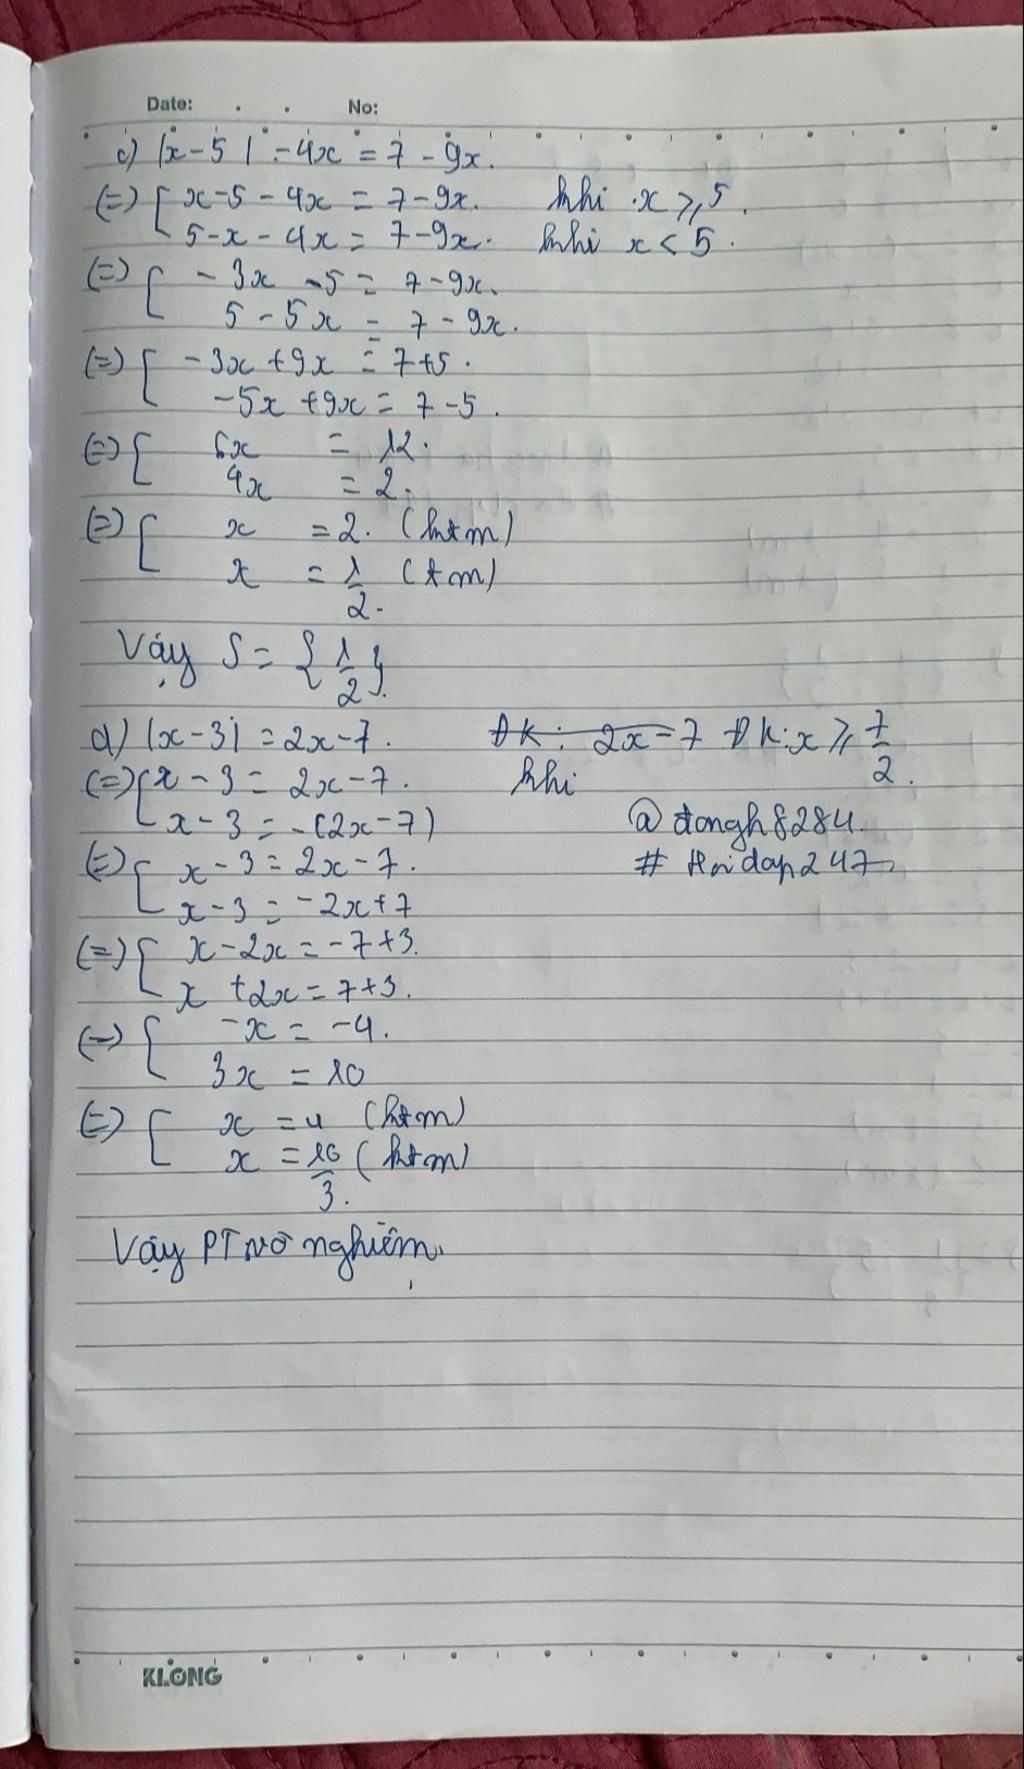 Date: . . No:
c) |x-5| - 4x = 7 - 9x.
(=) [ x-5 - 4x = 7-9x. khi x ⩾ 5.
5-x - 4x = 7-9x. khi x < 5.
(=) [ - 3x - 5 = 7 - 9x.
5 - 5x = 7 - 9x.
(=) [ - 3x + 9x = 7+5.
-5x + 9x = 7-5.
(=) [ 6x = 12.
4x = 2.
(=) [ x = 2. (ktm)
x = 1/2. (tm)
Vậy S = {1/2}.
d) |x-3| = 2x-7. ĐK: 2x-7 ĐK: x ⩾ 7/2.
(=) [ x - 3 = 2x - 7. khi
x - 3 = -(2x-7) @dongh8284.
(=) [ x - 3 = 2x - 7. # Hoidap247.
x - 3 = -2x+7
(=) [ x - 2x = -7+3.
x + 2x = 7+3.
(=) [ -x = -4.
3x = 10
(=) [ x = 4 (ktm)
x = 10/3. (ktm)
Vậy PT vô nghiệm.
KLONG